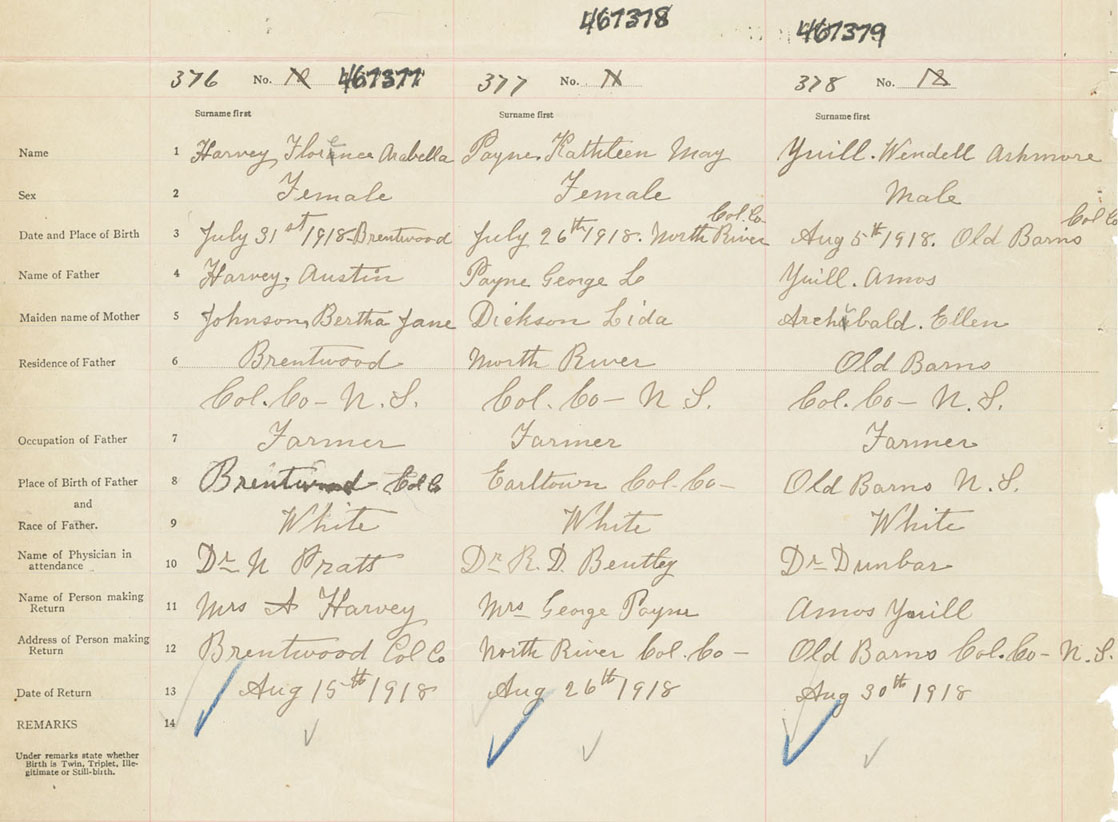 467378 467379
376 No. 10 467377 377 No. 11 378 No. 12
Surname first Surname first Surname first
Name 1 Harvey, Florence Arabella Payne, Kathleen May Yuill. Wendell Ashmore
Sex 2 Female Female Male
Col. Co Col Co
Date and Place of Birth 3 July 31st 1918-Brentwood July 26th 1918. North River Aug 5th 1918. Old Barns
Name of Father 4 Harvey, Austin Payne George L Yuill. Amos
Maiden name of Mother 5 Johnson, Bertha Jane Dickson Lida Archibald. Ellen
Residence of Father 6 Brentwood North River Old Barns
Col. Co- N. S. Col. Co- N S. Col. Co- N. S.
Occupation of Father 7 Farmer Farmer Farmer
Place of Birth of Father 8 Brentwood Col Co Earltown Col. Co- Old Barns N. S.
and
Race of Father. 9 White White White
Name of Physician in
attendance 10 Dr N Pratt Dr R. D. Bentley Dr Dunbar
Name of Person making
Return 11 Mrs A Harvey Mrs George Payne Amos Yuill
Address of Person making
Return 12 Brentwood Col Co North River Col. Co- Old Barns Col. Co- N. S.
Date of Return 13 Aug 15th 1918 Aug 26th 1918 Aug 30th 1918
REMARKS 14
Under remarks state whether
Birth is Twin, Triplet, Ille-
gitimate or Still-birth.